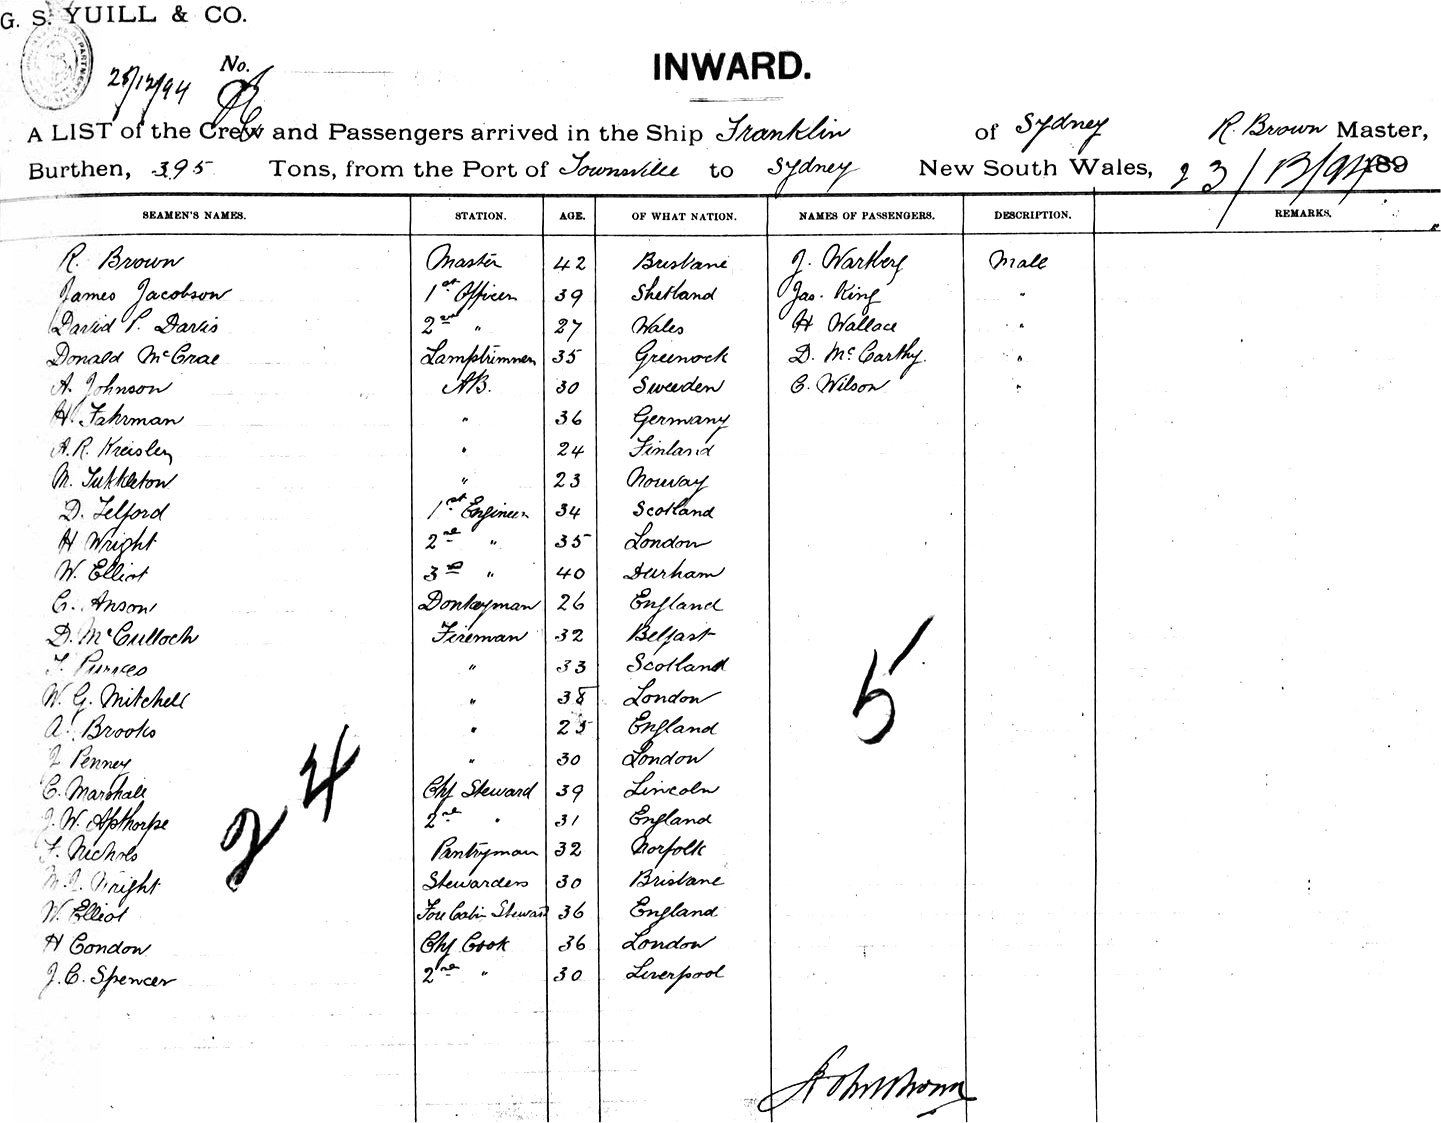 G. S. YUILL & CO.
25/12/94 No.
INWARD.
A LIST of the Crew and Passengers arrived in the Ship Franklin of Sydney R. Brown Master,
Burthen, 395 Tons, from the Port of Townsville to Sydney New South Wales, 23/12/94 189
SEAMEN'S NAMES. STATION. AGE. OF WHAT NATION. NAMES OF PASSENGERS. DESCRIPTION. REMARKS.
R. Brown Master 42 Brisbane J. Wartberg Male
James Jacobson 1st Officer 39 Shetland Jas. King "
David P. Davis 2nd " 27 Wales H Wallace "
Donald McCrae Lamptrimmer 35 Greenock D. McCarthy. "
A. Johnson AB. 30 Sweeden C. Wilson "
H. Fahrman " 36 Germany
A. R. Kreisley " 24 Finland
M. " 23 Norway
D. Telford 1st Engineer 34 Scotland
H Wright 2nd " 35 London
W. Elliot 3rd " 40 Durham
G. Anson Donkeyman 26 England
D. McCulloch Fireman 32 Belfast
" 33 Scotland
W. G. Mitchell " 38 London
A. Brooks " 25 England
J Penney " 30 London
C. Marshall Chf Steward 39 Lincoln
J. W. Apthorpe 2nd " 31 England
F. Nichols Pantryman 32 Norfolk
Wright Stewardess 30 Brisbane
W. Elliot Fore Cabin Steward 36 England
H Condon Chf Cook 36 London
J. C. Spencer 2nd " 30 Liverpool
24
5